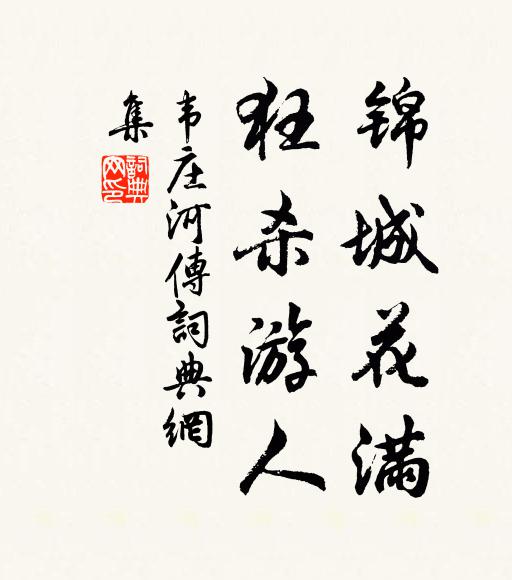 锦城花满
狂杀游人
韦庄河傳詞典網
集
詞典
网印